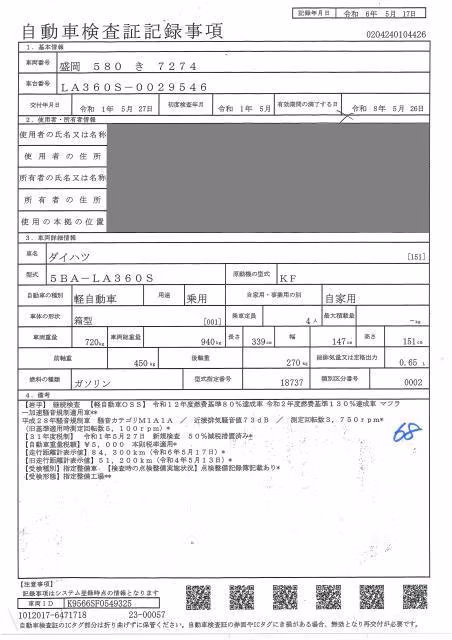 記録年月日 令和 6年 5月 17日
自動車検査証記録事項
0204240104426
1. 基本情報
車両番号 盛岡 580 き 7274
車台番号 LA360S-0029546
交付年月日 令和 1年 5月 27日 初度検査年月 令和 1年 5月 有効期間の満了する日 令和 8年 5月 26日
2. 使用者・所有者情報
使用者の氏名又は名称
使用者の住所
所有者の氏名又は名称
所有者の住所
使用の本拠の位置
3. 車両詳細情報
車名 ダイハツ [151]
型式 5BA-LA360S 原動機の型式 KF
自動車の種別 軽自動車 用途 乗用 自家用・事業用の別 自家用
車体の形状 箱型 [001] 乗車定員 4人 最大積載量 -kg
車両重量 720kg 車両総重量 940kg 長さ 339cm 幅 147cm 高さ 151cm
前軸重 450kg 後軸重 270kg 総排気量又は定格出力 0.65 L
燃料の種類 ガソリン 型式指定番号 18737 類別区分番号 0002
4. 備考
【岩手】 継続検査 【軽自動車OSS】 令和12年度燃費基準80%達成車 令和2年度燃費基準130%達成車 マフラ
ー加速騒音規制適用車**
平成28年騒音規制車 騒音カテゴリM1A1A / 近接排気騒音値73dB / 測定回転数3,750rpm*
(旧基準適用時測定回転数5,100rpm)*
【31年度税制】 令和1年5月27日 新規検査 50%減税措置済み*
【自動車重量税額】 ¥5,000 本則税率適用*
【走行距離計表示値】 84,300km (令和6年5月17日)*
【旧走行距離計表示値】 51,200km (令和4年5月13日)*
【受検種別】指定整備車 【検査時の点検整備実施状況】点検整備記録簿記載あり*
【受検形態】指定整備工場**
68
【注意事項】
記録事項はシステム登録時点の情報となります
車両ID K9566SF0549325
1012017-6471718 23-00057
自動車検査証のICタグ部分は折り曲げずに保管ください。自動車検査証の券面やICタグにき損がある場合、無効となり再交付が必要です。